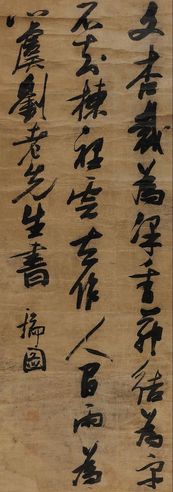 文杏裁為梁香茅結為宇
不知棟裡雲去作人間雨為
心虞劉老先生書 瑞圖